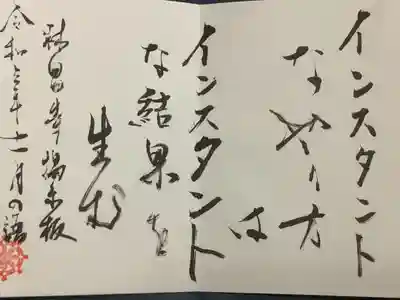 インスタント
なやり方
は
インスタント
な結果を
生む
林昌寺掲示板
令和三年十一月の語